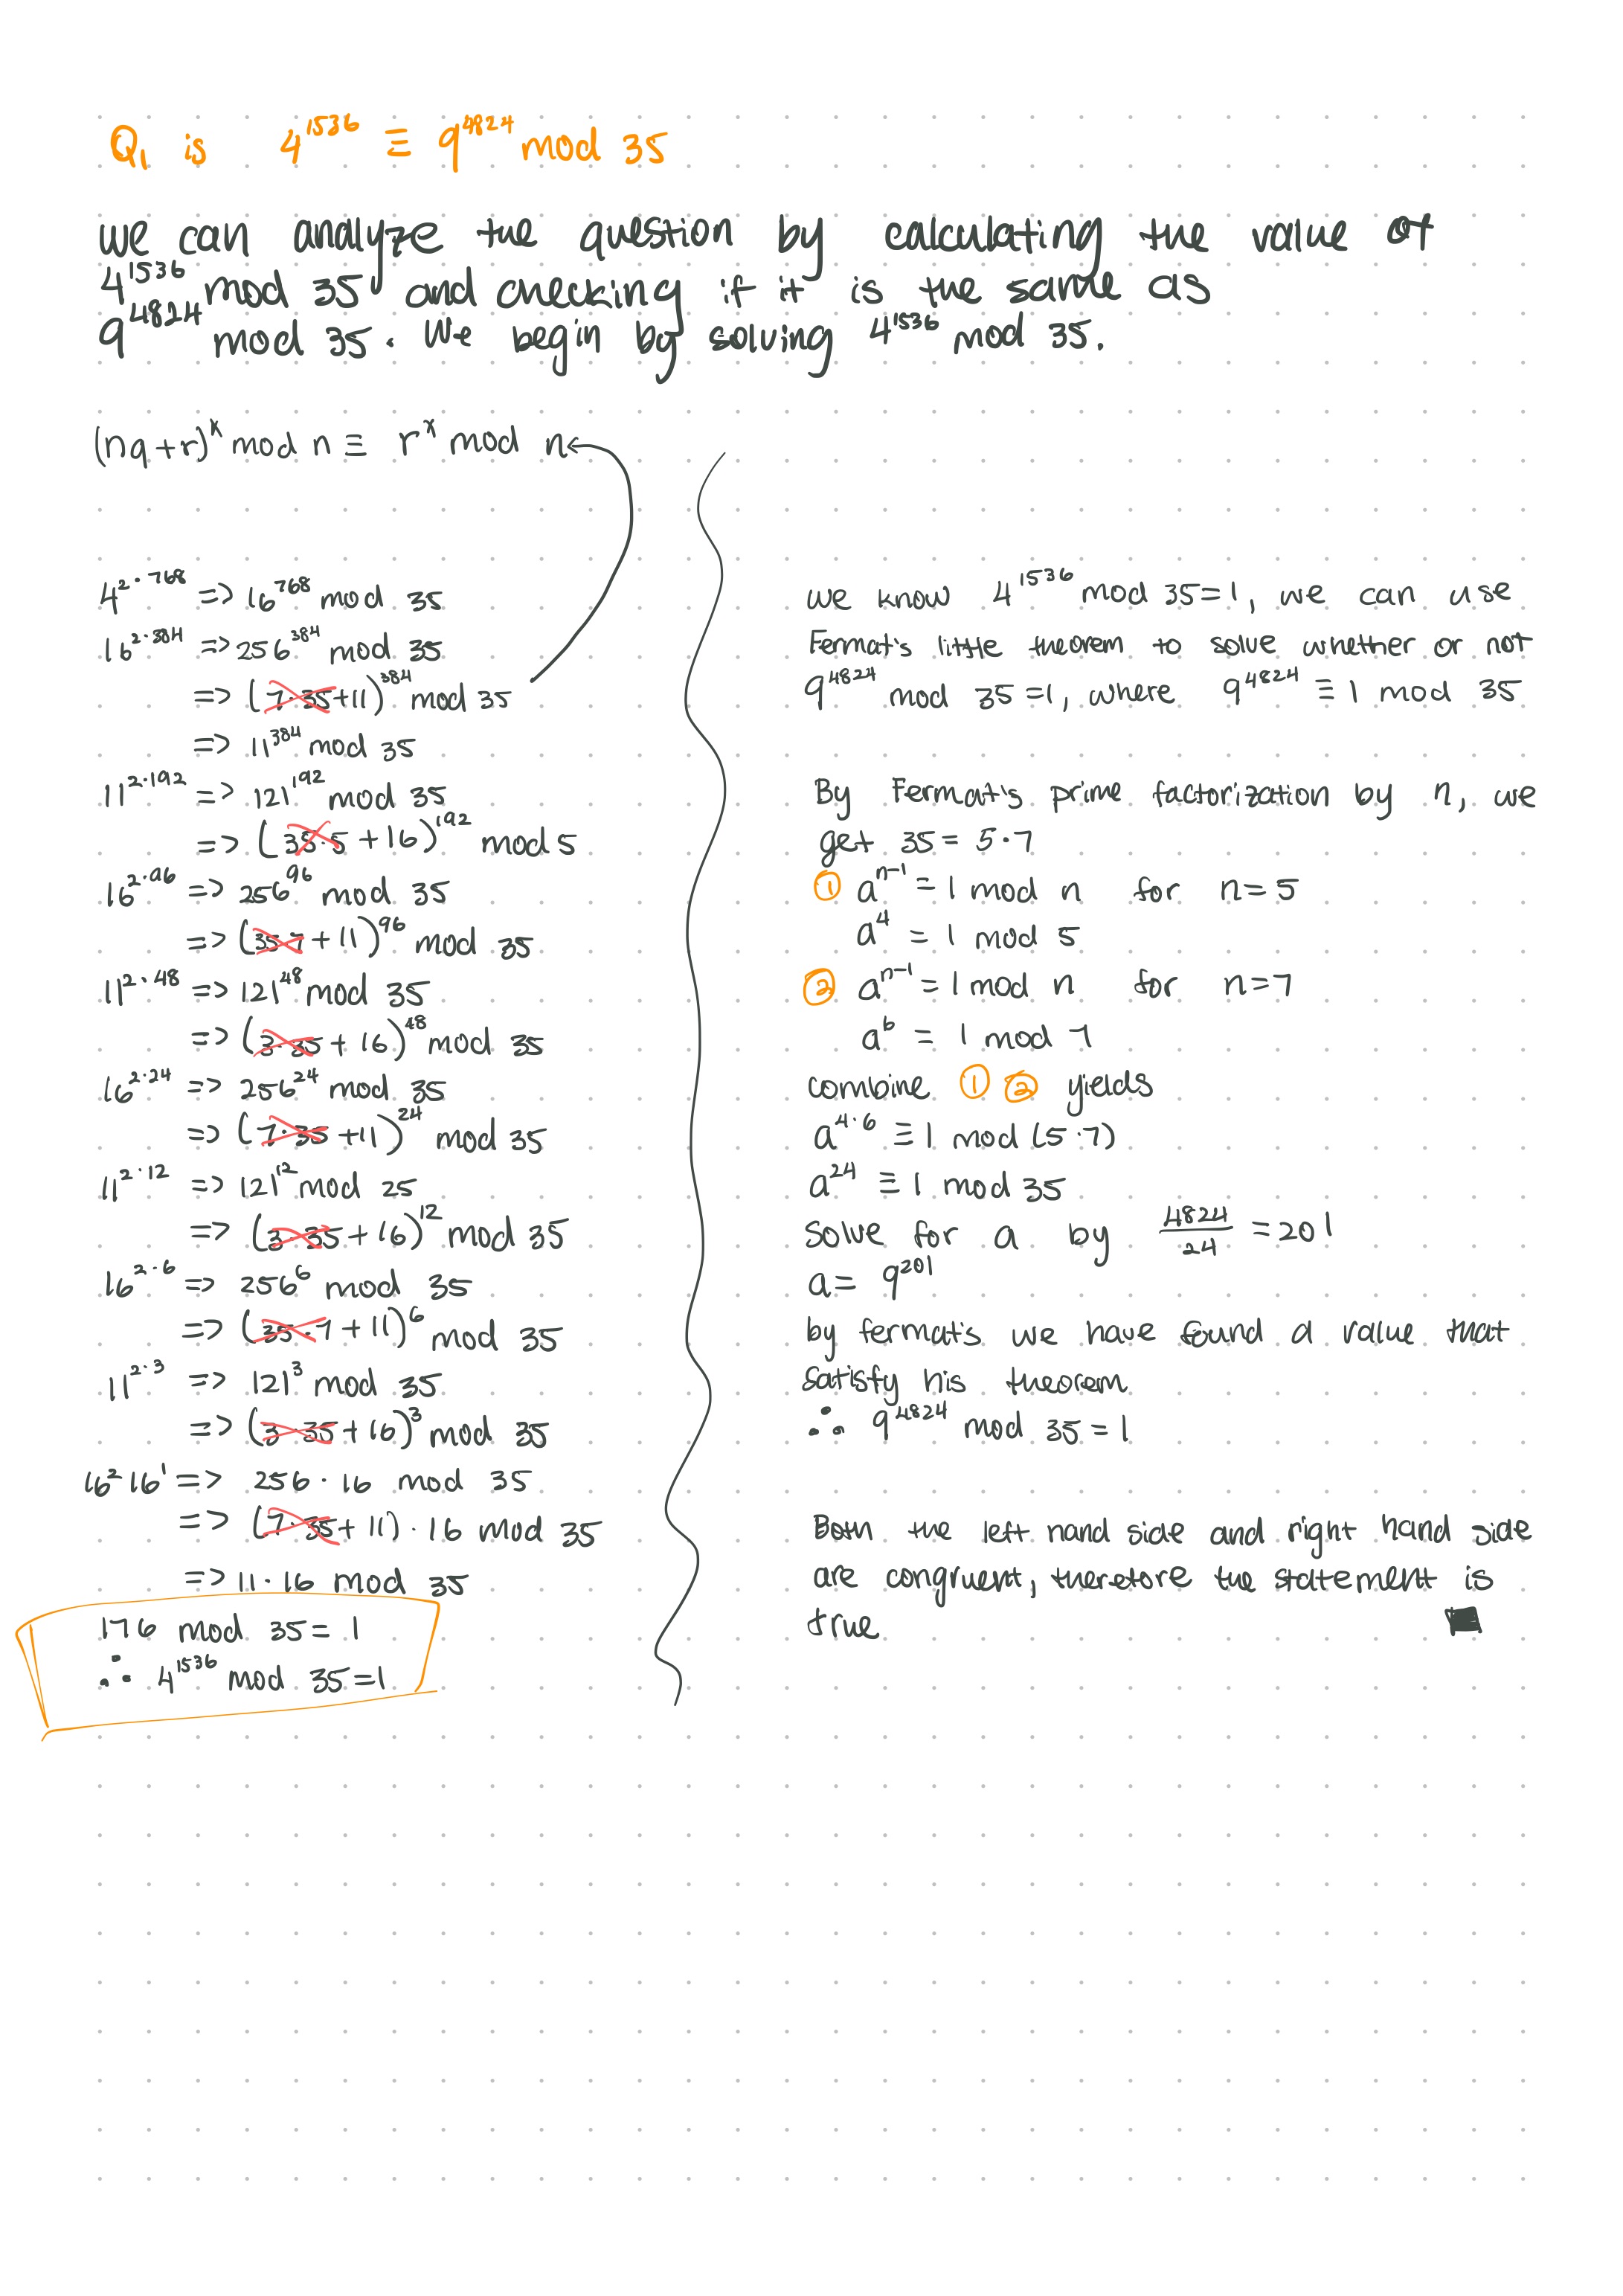 Q1 is 4^1536 ≡ 9^4824 mod 35
we can analyze the question by calculating the value of
4^1536 mod 35 and checking if it is the same as
9^4824 mod 35. We begin by solving 4^1536 mod 35.
(nq+r)^x mod n ≡ r^x mod n
4^2·768 => 16^768 mod 35
16^2·384 => 256^384 mod 35
=> (7·35+11)^384 mod 35
=> 11^384 mod 35
11^2·192 => 121^192 mod 35
=> (35·5+16)^192 mod 5
16^2·96 => 256^96 mod 35
=> (35·7+11)^96 mod 35
11^2·48 => 121^48 mod 35
=> (3·35+16)^48 mod 35
16^2·24 => 256^24 mod 35
=> (7·35+11)^24 mod 35
11^2·12 => 121^12 mod 25
=> (3·35+16)^12 mod 35
16^2·6 => 256^6 mod 35
=> (35·7+11)^6 mod 35
11^2·3 => 121^3 mod 35
=> (3·35+16)^3 mod 35
16^2 16^1 => 256·16 mod 35
=> (7·35+11)·16 mod 35
=> 11·16 mod 35
176 mod 35 = 1
∴ 4^1536 mod 35=1
we know 4^1536 mod 35=1, we can use
Fermat's little theorem to solve whether or not
9^4824 mod 35=1, where 9^4824 ≡ 1 mod 35
By Fermat's prime factorization by n, we
get 35 = 5·7
① a^n-1 = 1 mod n for n=5
a^4 = 1 mod 5
② a^n-1 = 1 mod n for n=7
a^6 = 1 mod 7
combine ① ② yields
a^4·6 ≡ 1 mod (5·7)
a^24 ≡ 1 mod 35
Solve for a by 4824/24 = 201
a = 9^201
by fermat's we have found a value that
satisfy his theorem
∴ 9^4824 mod 35 = 1
Both the left hand side and right hand side
are congruent, therefore the statement is
true ■